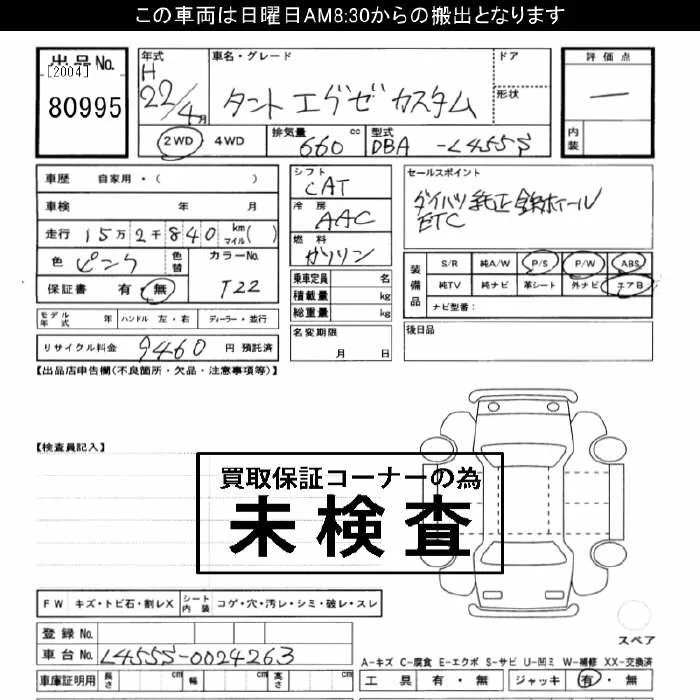 この車両は日曜日AM8:30からの搬出となります
出品No.
[2004]
80995
年式 H 22/4月
車名・グレード
タント エグゼ カスタム
ドア
形状
評価点
—
内装
2WD 4WD
排気量 660 cc
型式 DBA -L455S
車歴 自家用・( )
車検 年 月
走行 15万2千840 km マイル( )
色 ピンク
色替
カラーNo. T22
保証書 有・無
シフト CAT
冷房 AAC
燃料 ガソリン
乗車定員 名
積載量 kg
総重量 kg
セールスポイント
ダイハツ純正鉄ホイール
ETC
装備品
S/R 純A/W P/S P/W ABS
純TV 純ナビ 革シート 外ナビ エアB
ナビ型番:
モデル年式 年 ハンドル 左・右 ディーラー・並行
名変期限 月 日
後日品
リサイクル料金 9460 円 預託済
【出品店申告欄(不良箇所・欠品・注意事項等)】
【検査員記入】
買取保証コーナーの為
未検査
FW キズ・トビ石・割レX シート内装 コゲ・穴・汚レ・シミ・破レ・スレ
スペア
登録No.
車台No. L455S-0024263
車庫証明用 長さ cm 幅 cm 高さ cm
A-キズ C-腐食 E-エクボ S-サビ U-凹ミ W-補修 XX-交換済
工具 有・無 ジャッキ 有・無